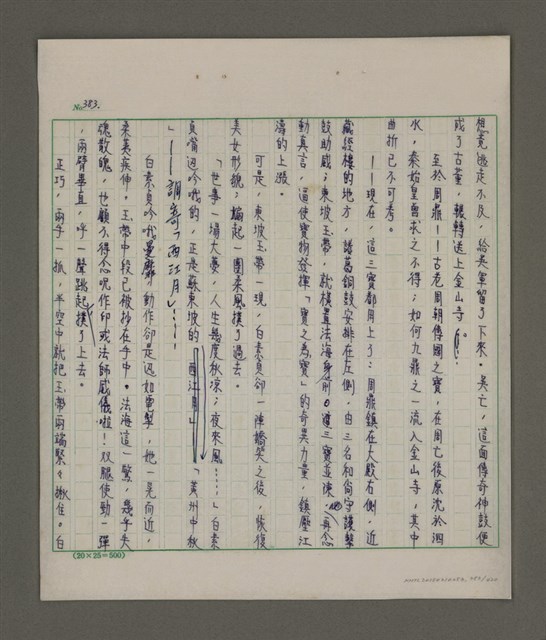 No. 383.
想竟逃走不反,給吳軍留了下來。吳亡,這面傳奇神鼓便
成了古董,輾轉送上金山寺。
至於周鼎——古老周朝傳國之寶,在周亡後原沈於泗
水,秦始皇曾求之不得;如何九鼎之一流入金山寺,其中
曲折已不可考。
——現在,這三寶都用上了:周鼎鎮在大殿右側,近
藏經樓的地方,諸葛銅鼓安排在左側,由三名和尚守護擊
鼓助威;東坡玉帶,就橫置法海身前。三寶並陳,再念
動真言,逼使寶物發揮「寶之為寶」的奇異力量,鎮壓江
濤的上漲。
可是,東坡玉帶一現,白素貞卻一陣嬌笑之後,恢復
美女形貌;煽起一團柔風撲了過去。
「世事一場大夢,人生幾度秋涼;夜來風……」白素
貞當迎吟哦的,正是蘇東坡的「西江月」「黃州中秋
」——調寄「西江月」……
白素貞吟哦曼聲,動作卻是迅如電掣,她一晃而近,
柔荑疾伸。玉帶中段已被抄在手中。法海這一驚,幾乎失
魂散魄,也顧不得念咒作印或法師威儀啦!雙腿使勁一彈
,兩臂畢直,呼一聲跳起撲了上去。
正巧,兩手一抓,半空中就把玉帶兩端緊緊揪住。白
(20×25=500)